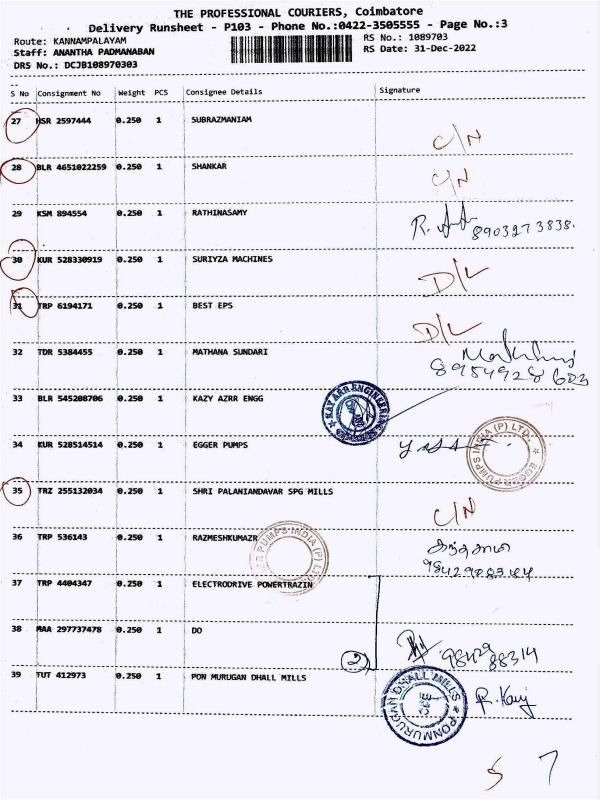 THE PROFESSIONAL COURIERS, Coimbatore
Delivery Runsheet - P103 - Phone No.:0422-3505555 - Page No.:3
Route: KANNAMPALAYAM
RS No.: 1089703
Staff: ANANTHA PADMANABAN
RS Date: 31-Dec-2022
DRS No.: DCJB108970303
S No Consignment No Weight PCS Consignee Details Signature
27 HSR 2597444 0.250 1 SUBRAZMANIAM C/N
28 BLR 4651022259 0.250 1 SHANKAR C/N
29 KSM 894554 0.250 1 RATHINASAMY R. 8903273838.
30 KUR 528330919 0.250 1 SURIYZA MACHINES D/L
31 TRP 6194171 0.250 1 BEST EPS D/L
32 TDR 5384455 0.250 1 MATHANA SUNDARI 8954928603
33 BLR 545208706 0.250 1 KAZY AZRR ENGG KAY ARR ENGINEERING
34 KUR 528514514 0.250 1 EGGER PUMPS EGGER PUMPS INDIA (P) LTD.
35 TRZ 255132034 0.250 1 SHRI PALANIANDAVAR SPG MILLS C/N
36 TRP 536143 0.250 1 RAZMESHKUMAZR PUMPS INDIA (P)
37 TRP 4404347 0.250 1 ELECTRODRIVE POWERTRAZIN
38 MAA 297737478 0.250 1 DO 2 98429 88314
39 TUT 412973 0.250 1 PON MURUGAN DHALL MILLS PONMURUGAN DHALL MILLS
5 7